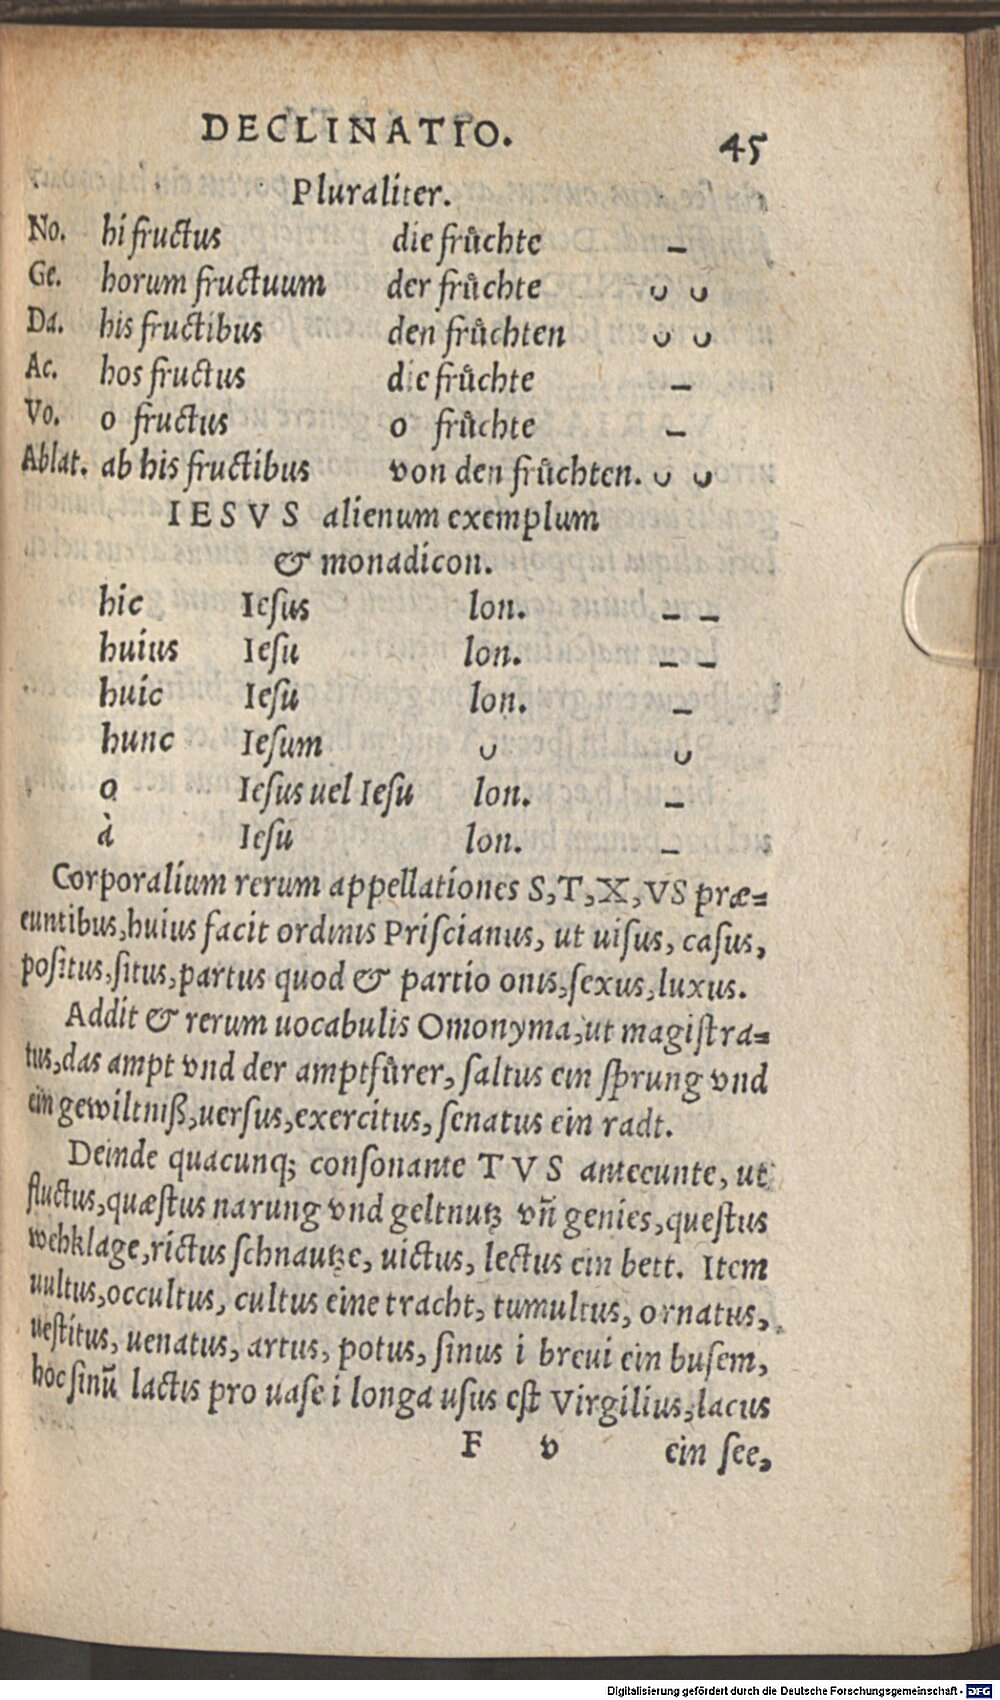 DECLINATIO. 45
Pluraliter.
No. hi fructus die frůchte –
Ge. horum fructuum der frůchte ᴗ ᴗ
Da. his fructibus den frůchten ᴗ ᴗ
Ac. hos fructus die frůchte –
Vo. o fructus o frůchte –
Ablat. ab his fructibus von den frůchten. ᴗ ᴗ
IESVS alienum exemplum
& monadicon.
hic Ieſus lon. – –
huius Ieſu lon. – –
huic Ieſu lon. –
hunc Ieſum ᴗ ᴗ
o Ieſus uel Ieſu lon. –
à Ieſu lon. –
Corporalium rerum appellationes S, T, X, VS præ=
euntibus, huius facit ordinis Priſcianus, ut uiſus, caſus,
poſitus, ſitus, partus quod & partio onis, ſexus, luxus.
Addit & rerum uocabulis Omonyma, ut magiſtra=
tus, das ampt vnd der amptfůrer, ſaltus ein ſprung vnd
ein gewiltniß, uerſus, exercitus, ſenatus ein radt.
Deinde quacunq; conſonante TVS anteeunte, ut
fluctus, quæſtus narung vnd geltnutz vñ genies, queſtus
wehklage, rictus ſchnautze, uictus, lectus ein bett. Item
uultus, occultus, cultus eine tracht, tumultus, ornatus,
ueſtitus, uenatus, artus, potus, ſinus i breui ein buſem,
hoc ſinũ lactis pro uaſe i longa uſus eſt Virgilius, lacus
F v ein ſee,
Digitalisierung gefördert durch die Deutsche Forschungsgemeinschaft - DFG